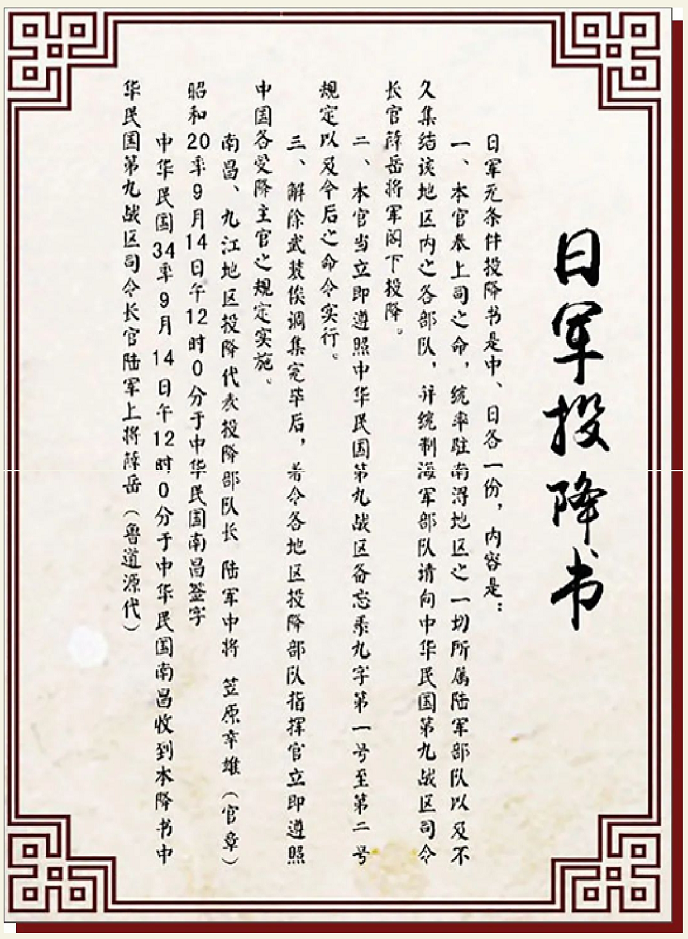 日军投降书
日军无条件投降书是中、日各一份，内容是：
一、本官奉上司之命，统率驻南浔地区之一切所属陆军部队以及不
久集结该地区内之各部队，并统制海军部队请向中华民国第九战区司令
长官薛岳将军阁下投降。
二、本官当立即遵照中华民国第九战区备忘录九字第一号至第二号
规定以及今后之命令实行。
三、解除武装俟调集完毕后，着令各地区投降部队指挥官立即遵照
中国各受降主官之规定实施。
南昌、九江地区投降代表投降部队长 陆军中将 笠原幸雄（官章）
昭和20年9月14日午12时0分于中华民国南昌签字
中华民国34年9月14日午12时0分于中华民国南昌收到本降书中
华民国第九战区司令长官陆军上将薛岳（鲁道源代）